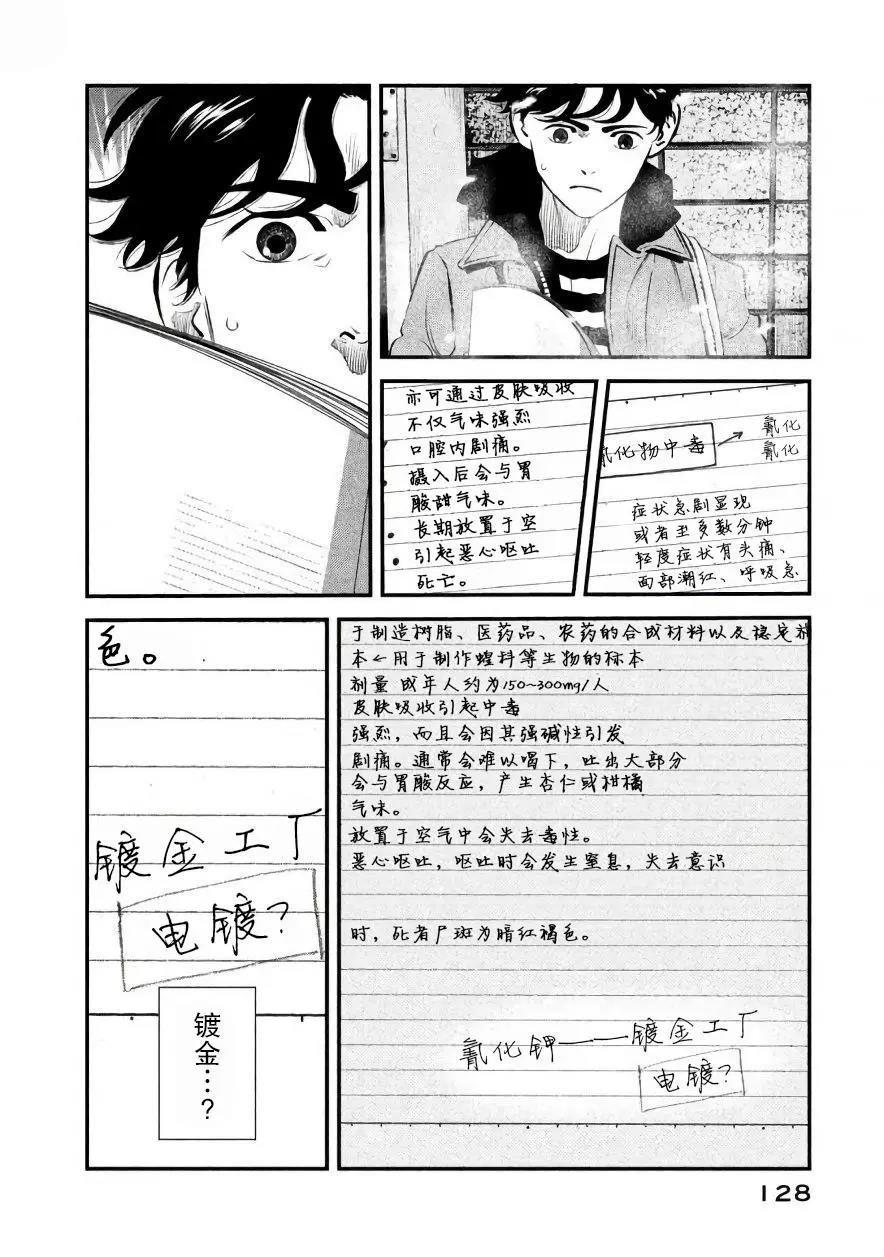 氰化物中毒
氰化
氰化
症状急剧显现
或者至多数分钟
轻度症状有头痛、
面部潮红、呼吸急
亦可通过皮肤吸收
不仅气味强烈
口腔内剧痛。
摄入后会与胃
酸甜气味。
长期放置于空
引起恶心呕吐
死亡。
于制造树脂、医药品、农药的合成材料以及稳定剂
本←用于制作蝗料等生物的标本
剂量 成年人约为150~300mg/人
皮肤吸收引起中毒
强烈，而且会因其强碱性引发
剧痛。通常会难以喝下，吐出大部分
会与胃酸反应，产生杏仁或柑橘
气味。
放置于空气中会失去毒性。
恶心呕吐，呕吐时会发生窒息，失去意识
时，死者尸斑为暗红褐色。
氰化钾——镀金工厂
电镀？
色。
镀金工厂
电镀？
镀金…？
128